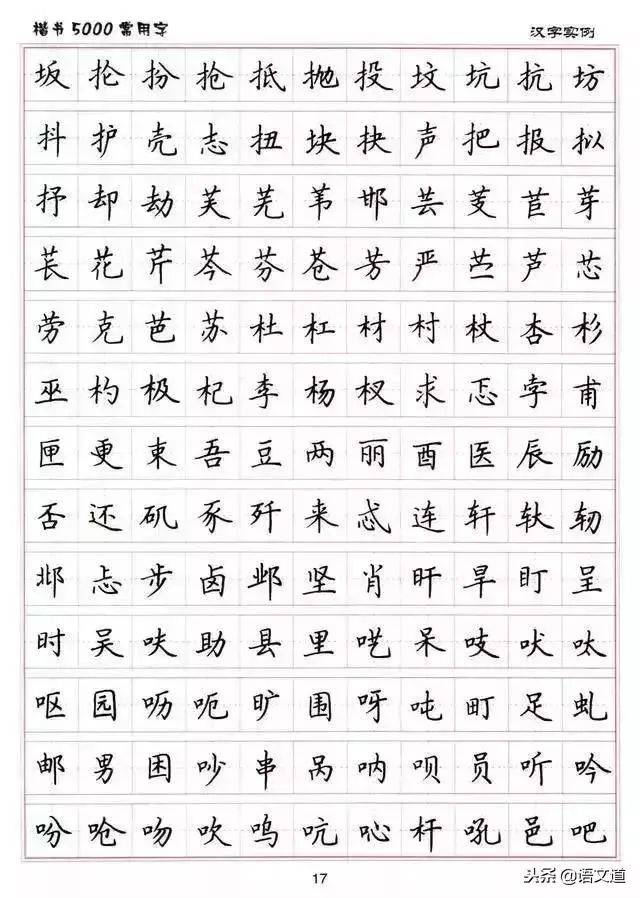 楷书5000常用字 汉字实例
坂 抡 扮 抢 抵 抛 投 坟 坑 抗 坊
抖 护 壳 志 扭 块 抉 声 把 报 拟
抒 却 劫 芙 芜 苇 邯 芸 芰 苣 芽
苌 花 芹 芩 芬 苍 芳 严 苎 芦 芯
劳 克 芭 苏 杜 杠 材 村 杖 杏 杉
巫 杓 极 杞 李 杨 杈 求 忑 孛 甫
匣 更 束 吾 豆 两 丽 酉 医 辰 励
否 还 矶 豕 歼 来 忒 连 轩 轪 轫
邶 忐 步 卤 邺 坚 肖 旰 旱 盯 呈
时 吴 呋 助 县 里 呓 呆 吱 吠 呔
呕 园 呖 呃 旷 围 呀 吨 町 足 虬
邮 男 困 吵 串 呙 呐 呗 员 听 吟
吩 呛 吻 吹 呜 吭 吣 杆 吼 邑 吧
17
头条@语文道